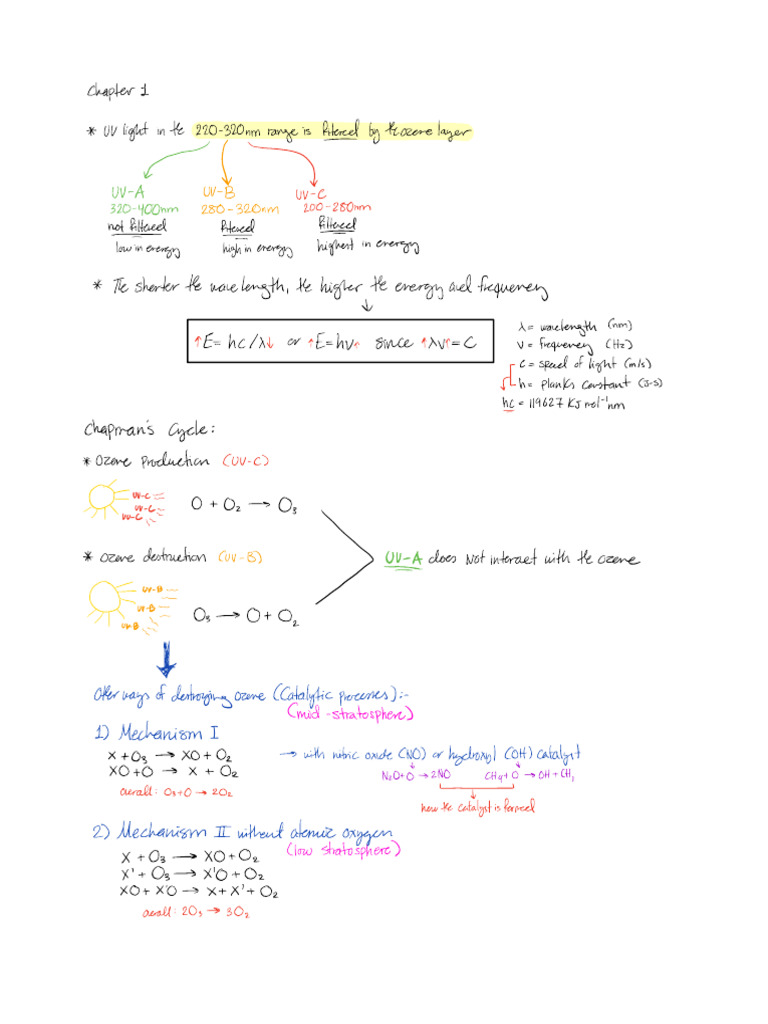 Chapter 1
* UV light in the 220-320nm range is filtered by the ozone layer
UV-A UV-B UV-C
320-400nm 280-320nm 200-280nm
not filtered filtered filtered
low in energy high in energy highest in energy
* The shorter the wavelength, the higher the energy and frequency
↑E = hc/λ↓ or ↑E=hν↑ since ↑λν↑ = C
λ = wavelength (nm)
ν = frequency (Hz)
C = speed of light (m/s)
h = planks constant (J·s)
hc = 119627 KJ mol⁻¹ nm
Chapman's Cycle:
* Ozone Production (UV-C)
UV-C
UV-C
UV-C
O + O₂ → O₃
* Ozone destruction (UV-B)
UV-A does not interact with the ozone
UV-B
UV-B
UV-B
O₃ → O + O₂
Other ways of destroying ozone (Catalytic processes):-
(mid-stratosphere)
1) Mechanism I
X + O₃ → XO + O₂ → with nitric oxide (NO) or hydroxyl (OH) catalyst
XO + O → X + O₂ N₂O + O → 2NO CH₄ + O → OH + CH₃
overall: O₃ + O → 2O₂
how the catalyst is formed
2) Mechanism II without atomic oxygen
(low stratosphere)
X + O₃ → XO + O₂
X' + O₃ → X'O + O₂
XO + X'O → X + X' + O₂
overall: 2O₃ → 3O₂